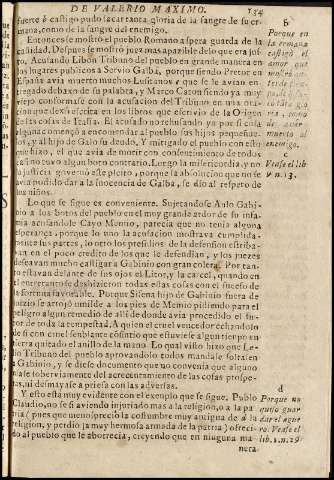 DE VALERIO MAXIMO. 134
fuerte ò castigo pudo sacar tanta gloria de la sangre de su cr-
mana, como de la sangre del enemigo.
Entonces se mostrò el pueblo Romano aspera guarda de la
castidad. Despues se mostrò juez mas apazible de lo que era jus-
to. Acusando Libon Tribuno del pueblo en grande manera en
los lugares publicos a Servio Galba, porque siendo Pretor en
España avia muerto muchos Lusitanos que se le avian en-
tregado debaxo de su palabra, y Marco Caton siendo ya muy
viejo conformase con la acusacion del Tribuno en una ora-
cion que dexò escrita en los libros que escrivio de la Origen
de las cosas de Italia. El acusado no rehusando ya por si cosa
alguna començò a encomendar al pueblo sus hijos pequeñue-
los, y al hijo de Galo su deudo. Y mitigado el pueblo con esto
que hizo, el que avia de morir con consentimiento de todos
casi no tuvo algun boto contrario. Luego la misericordia, y no
la justicia governò este pleito, porque la absolucion que no se
avia podido dar a la inocencia de Galba, se diò al respeto de
los niños.
Lo que se sigue es conveniente. Sujetandose Aulo Gabi-
nio a los botos del pueblo en el muy grande ardor de su infa-
mia acusandole Cayo Memio, parecia que no tenia alguna
esperança, porque lo uno la acusacion mostrava cumplida-
mente sus partes, lo otro los presidios de la defension estriba-
van en el poco credito de los que le defendian, y los juezes
deseavan mucho castigar a Gabinio con gran colera. Por tan-
to estavan delante de sus ojos el Litor, y la carcel, quando en
el entretanto se deshizieron todas ellas cosas con el suceso de
la fortuna favorable. Porque Sisena hijo de Gabinio fuera de
juizio se arrojò umilde a los pies de Memio pidiendo para el
peligro algun remedio de allì de donde avia procedido el fu-
ror de toda la tempestad. A quien el cruel vencedor echandolo
de si con cruel senblante consintiò que estuviese algun tiempo en
tierra quitado el anillo de la mano. Lo qual visto hizo que Le-
lio Tribuno del pueblo aprovandolo todos mandase soltar
a Gabinio, y se diese documento que no convenia que alguno
usase soberviamente del acrecentamiento de las cosas prospe-
ras, ni desmayase a priesa con las adversas.
Y esto està muy evidente con el exemplo que se sigue. Publo
Claudio, no se si aviendo injuriado mas a la religion, o a la pa-
tria (pues que menospreciò la costumbre muy antigua de la
religion, y perdiò la muy hermosa armada de la patria) ofreci-
do al pueblo que le aborrecia, creyendo que en ninguna ma-
nera
b
Porque en
la romana
castigò el
amor que
mostrò
al
enemigo.
c
Vease el lib.
v n. 13.
d
Porque no
quiso guar
dar el ague
ro. Vease el
lib. 1. n. 29